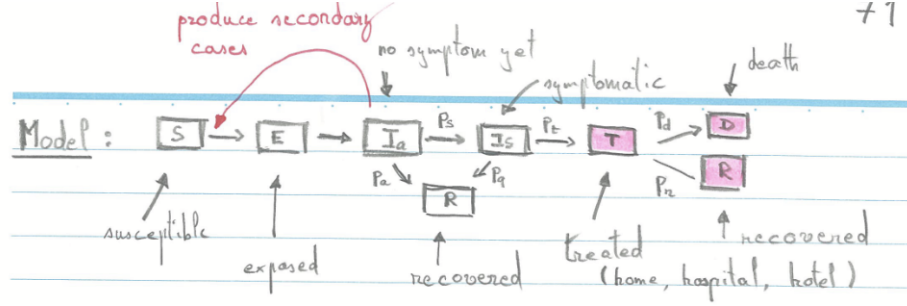 +1
produce secondary
cases
no symptom yet
symptomatic
death
Model :
S
E
Ia
Ps
Is
Pt
T
Pd
D
Pa
R
Pq
Pr
R
susceptible
exposed
recovered
treated
(home, hospital, hotel)
recovered